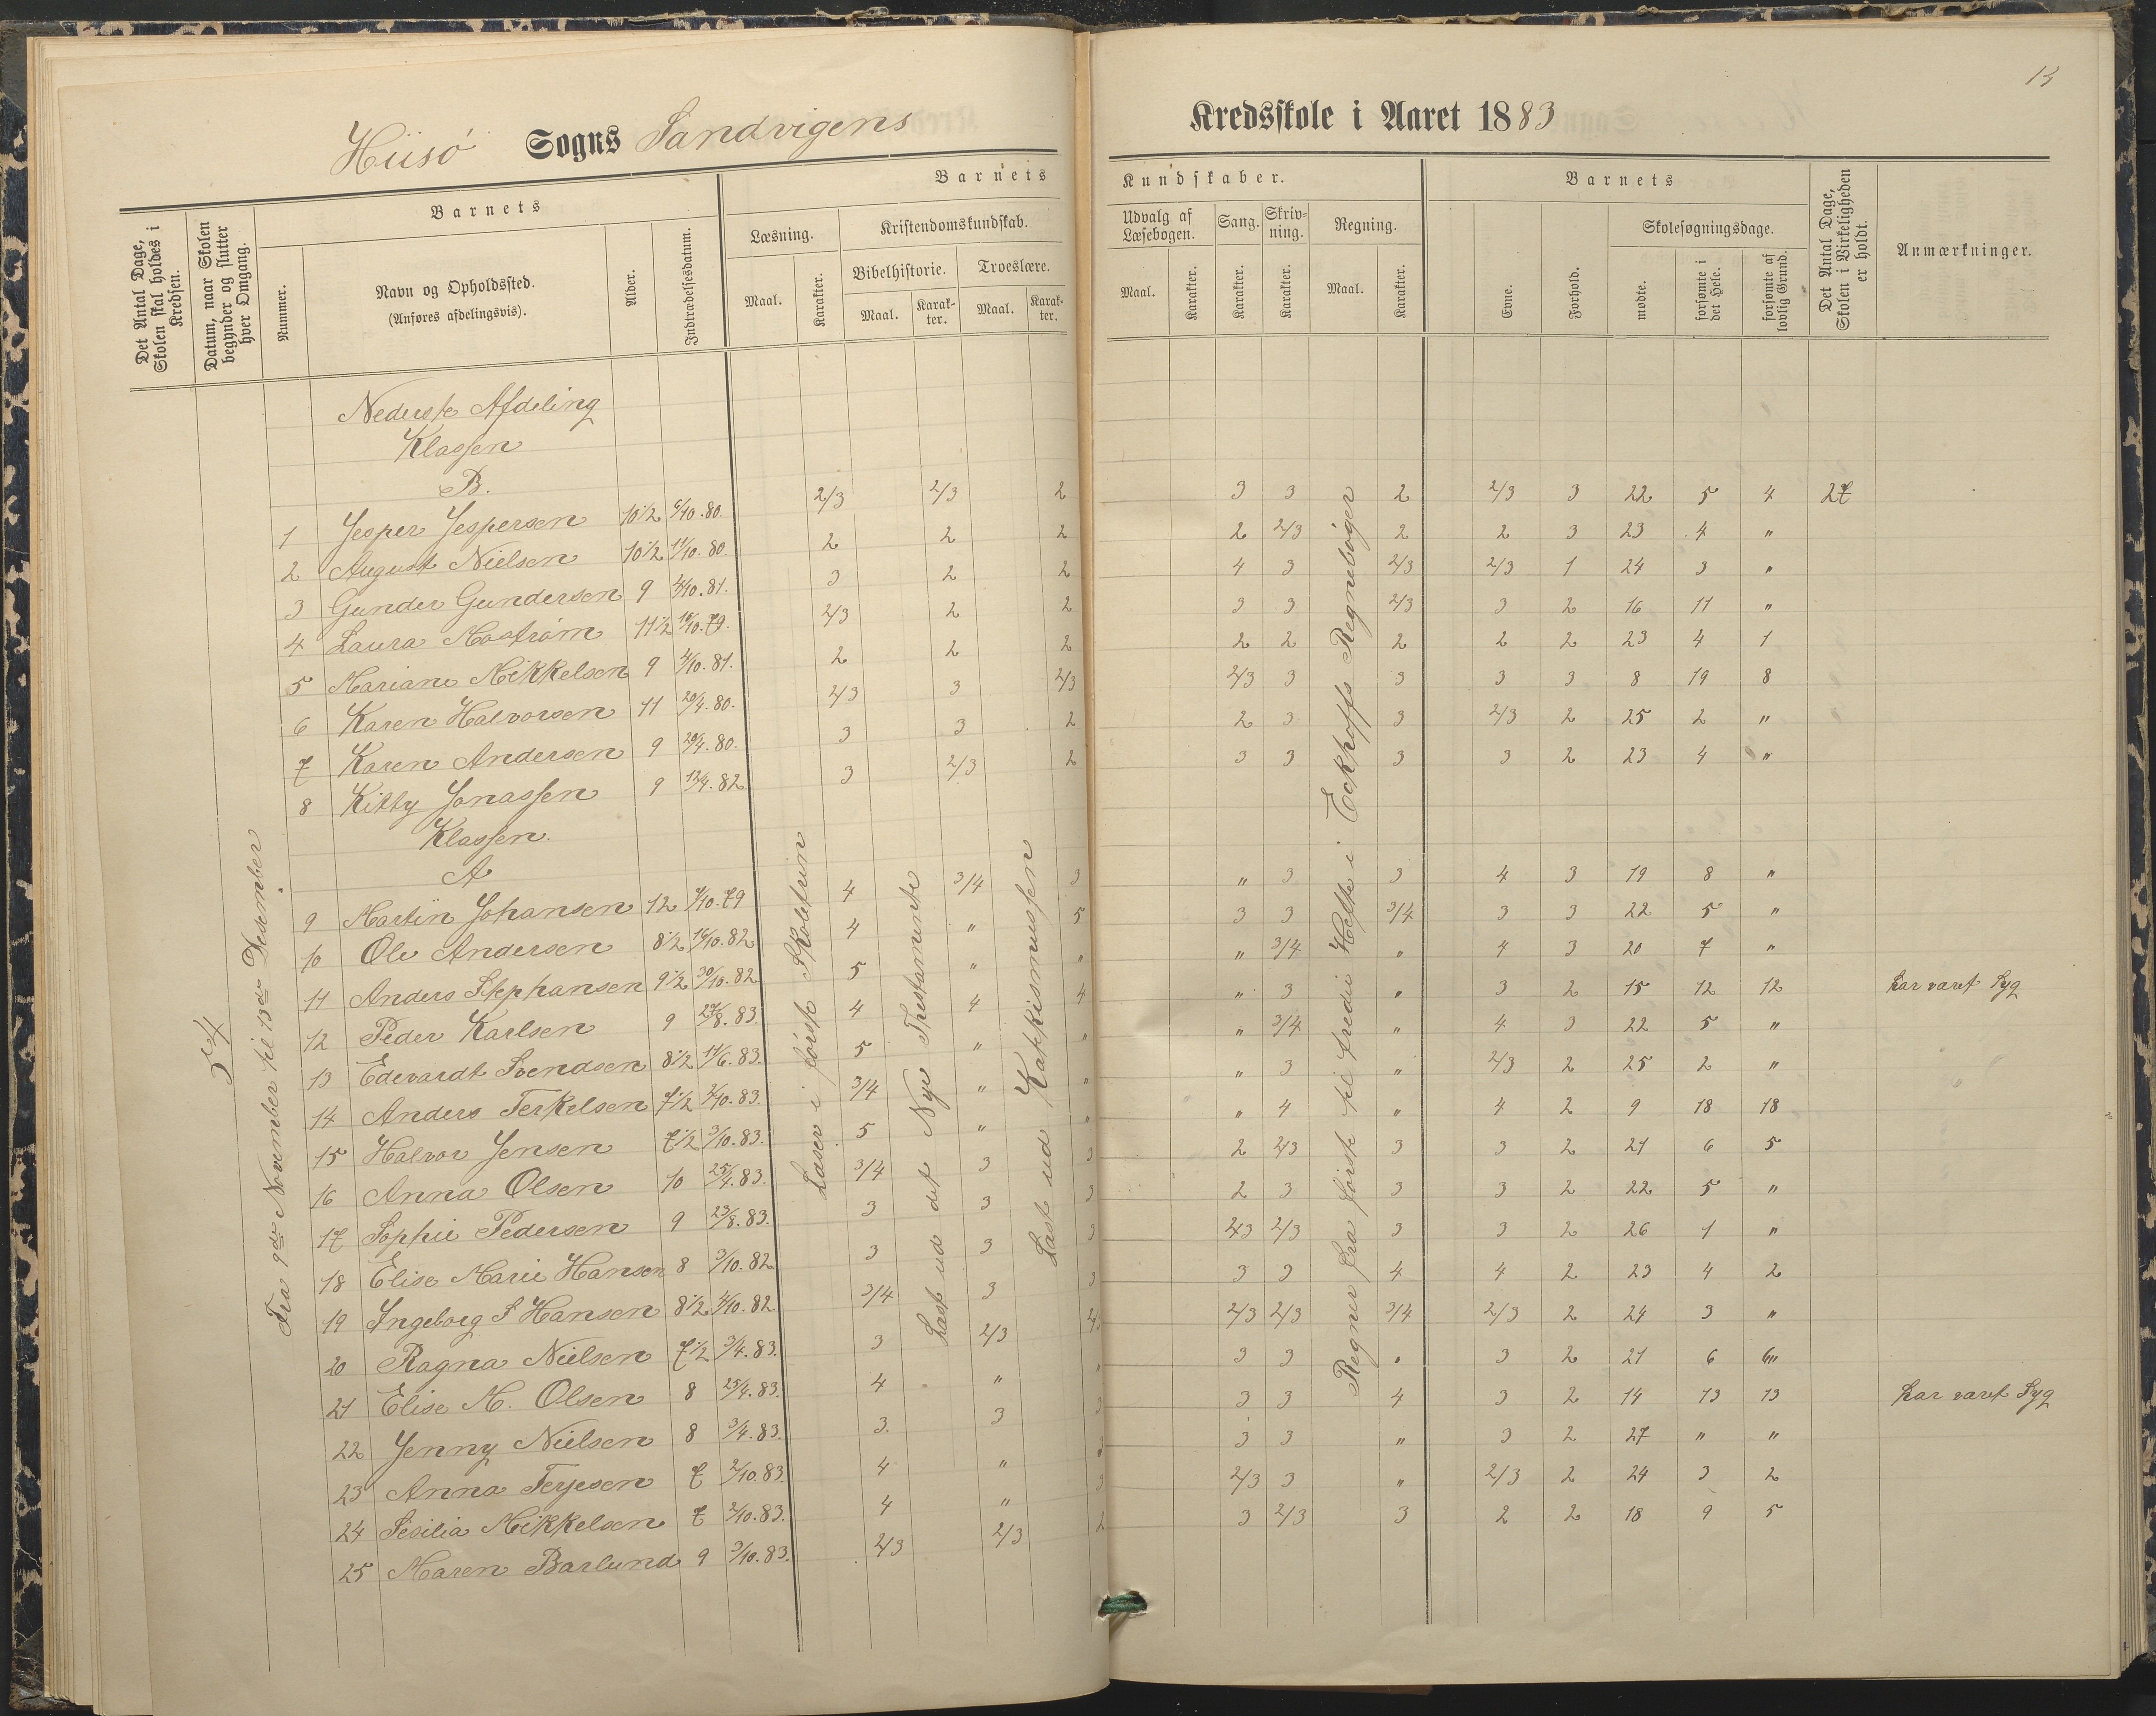 13
Hiisö Sogns Sandvigens Kredsskole i Aaret 1883
Det Antal Dage, Skolen skal holdes i Kredsen.
Datum, naar Skolen begynder og slutter hver Omgang.
Barnets
Nummer.
Navn og Opholdssted.
(Anføres afdelingsvis).
Alder.
Indtrædelsesdatum.
Barnets Kundskaber.
Læsning.
Maal.
Karakter.
Kristendomskundskab.
Bibelhistorie.
Maal.
Karakter.
Troeslære.
Maal.
Karakter.
Udvalg af Læsebogen.
Maal.
Karakter.
Sang.
Karakter.
Skrivning.
Karakter.
Regning.
Maal.
Karakter.
Barnets
Evne.
Forhold.
Skolesøgningsdage.
mødte.
forsømte i det Hele.
forsømte af lovlig Grund.
Det Antal Dage, Skolen i Virkeligheden er holdt.
Anmærkninger.
54
Fra 9de November til 13de Desember
Læser i første Skoletrin
Læst ud det Nye Thestamente
Læst ud Kattkismussen
Regner fra første til tredie Hefte i Eckhoffs Regnebøger
Nederste Afdeling
Klassen
B.
1 Jesper Jespersen 10 1/2 6/10.80. 2/3 2/3 2 3 3 2 2/3 3 22 5 4 27
2 August Nielsen 10 1/2 11/10.80. 2 2 2 2 2/3 2 2 3 23 4 "
3 Gunder Gundersen 9 4/10.81. 3 2 2 4 3 2/3 2/3 1 24 3 "
4 Laura Mostrøm 11 1/2 10/10.79. 2/3 2 2 3 3 2/3 3 2 16 11 "
5 Mariane Mikkelsen 9 4/10.81. 2 2 2 2 2 2 2 2 23 4 1
6 Karen Halvorsen 11 20/4.80. 2/3 3 2/3 2/3 3 3 3 3 8 19 8
7 Karen Andersen 9 20/4.80. 3 3 2 2 3 3 2/3 2 25 2 "
8 Kitty Jonassen 9 12/4.82 3 2/3 2 3 3 3 3 2 23 4 "
Klassen.
A
9 Martin Johansen 12 7/10.79 4 3/4 3 " 3 3 4 3 19 8 "
10 Ole Andersen 8 1/2 16/10.82 4 " 5 3 3 3/4 3 3 22 5 "
11 Anders Stephansen 9 1/2 30/10.82 5 " " " 3/4 " 4 3 20 7 "
12 Peder Karlsen 9 27/8.83. 4 4 4 " 3 " 3 2 15 12 12 har været Syg
13 Edevardt Svendsen 8 1/2 11/6.83. 5 " " " 3/4 " 4 3 22 5 "
14 Anders Terkelsen 7 1/2 2/10.83. 3/4 " " " 3 " 2/3 2 25 2 "
15 Halvor Jensen 7 1/2 3/10.83. 5 " " " 4 " 4 2 9 18 18
16 Anna Olsen 10 25/4.83. 3/4 3 3 2 2/3 3 3 2 21 6 5
17 Sophie Pedersen 9 23/8.83. 3 3 3 2 3 3 3 2 22 5 "
18 Elise Marie Hansen 8 3/10.82 3 3 3 2/3 2/3 3 3 2 26 1 "
19 Ingeborg S Hansen 8 1/2 4/10.82. 3/4 3 3 3 3 4 4 2 23 4 2
20 Ragna Nielsen 7 1/2 3/4.83. 3 2/3 2/3 2/3 3/4 2/3 2 24 3 "
21 Elise M. Olsen 8 25/4.83. 4 " " 3 3 " 3 2 21 6 6
22 Jenny Nielsen 8 3/4.83. 3. 3 3 3 3 4 3 2 14 13 13 har været Syg
23 Anna Terjesen 7 2/10.83. 4 " 3 3 " 3 2 27 " "
24 Sesilia Mikkelsen 7 2/10.83. 4 " 3 2/3 3 " 2/3 2 24 3 2
25 Maren Barlund 9 3/10.83. 2/3 2/3 2 3 2/3 3 2 2 18 9 5